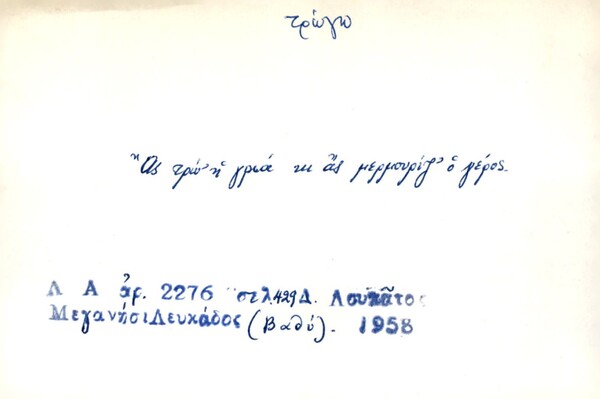 τρώγω
Ἂς τρώ' ἡ γριά κι ἂς μερμουρίζ' ὁ γέρος.
Λ Α ἀρ. 2276 σελ. 429 Δ. Λουκᾶτος
Μεγανήσι Λευκάδος (Βαθύ). 1958